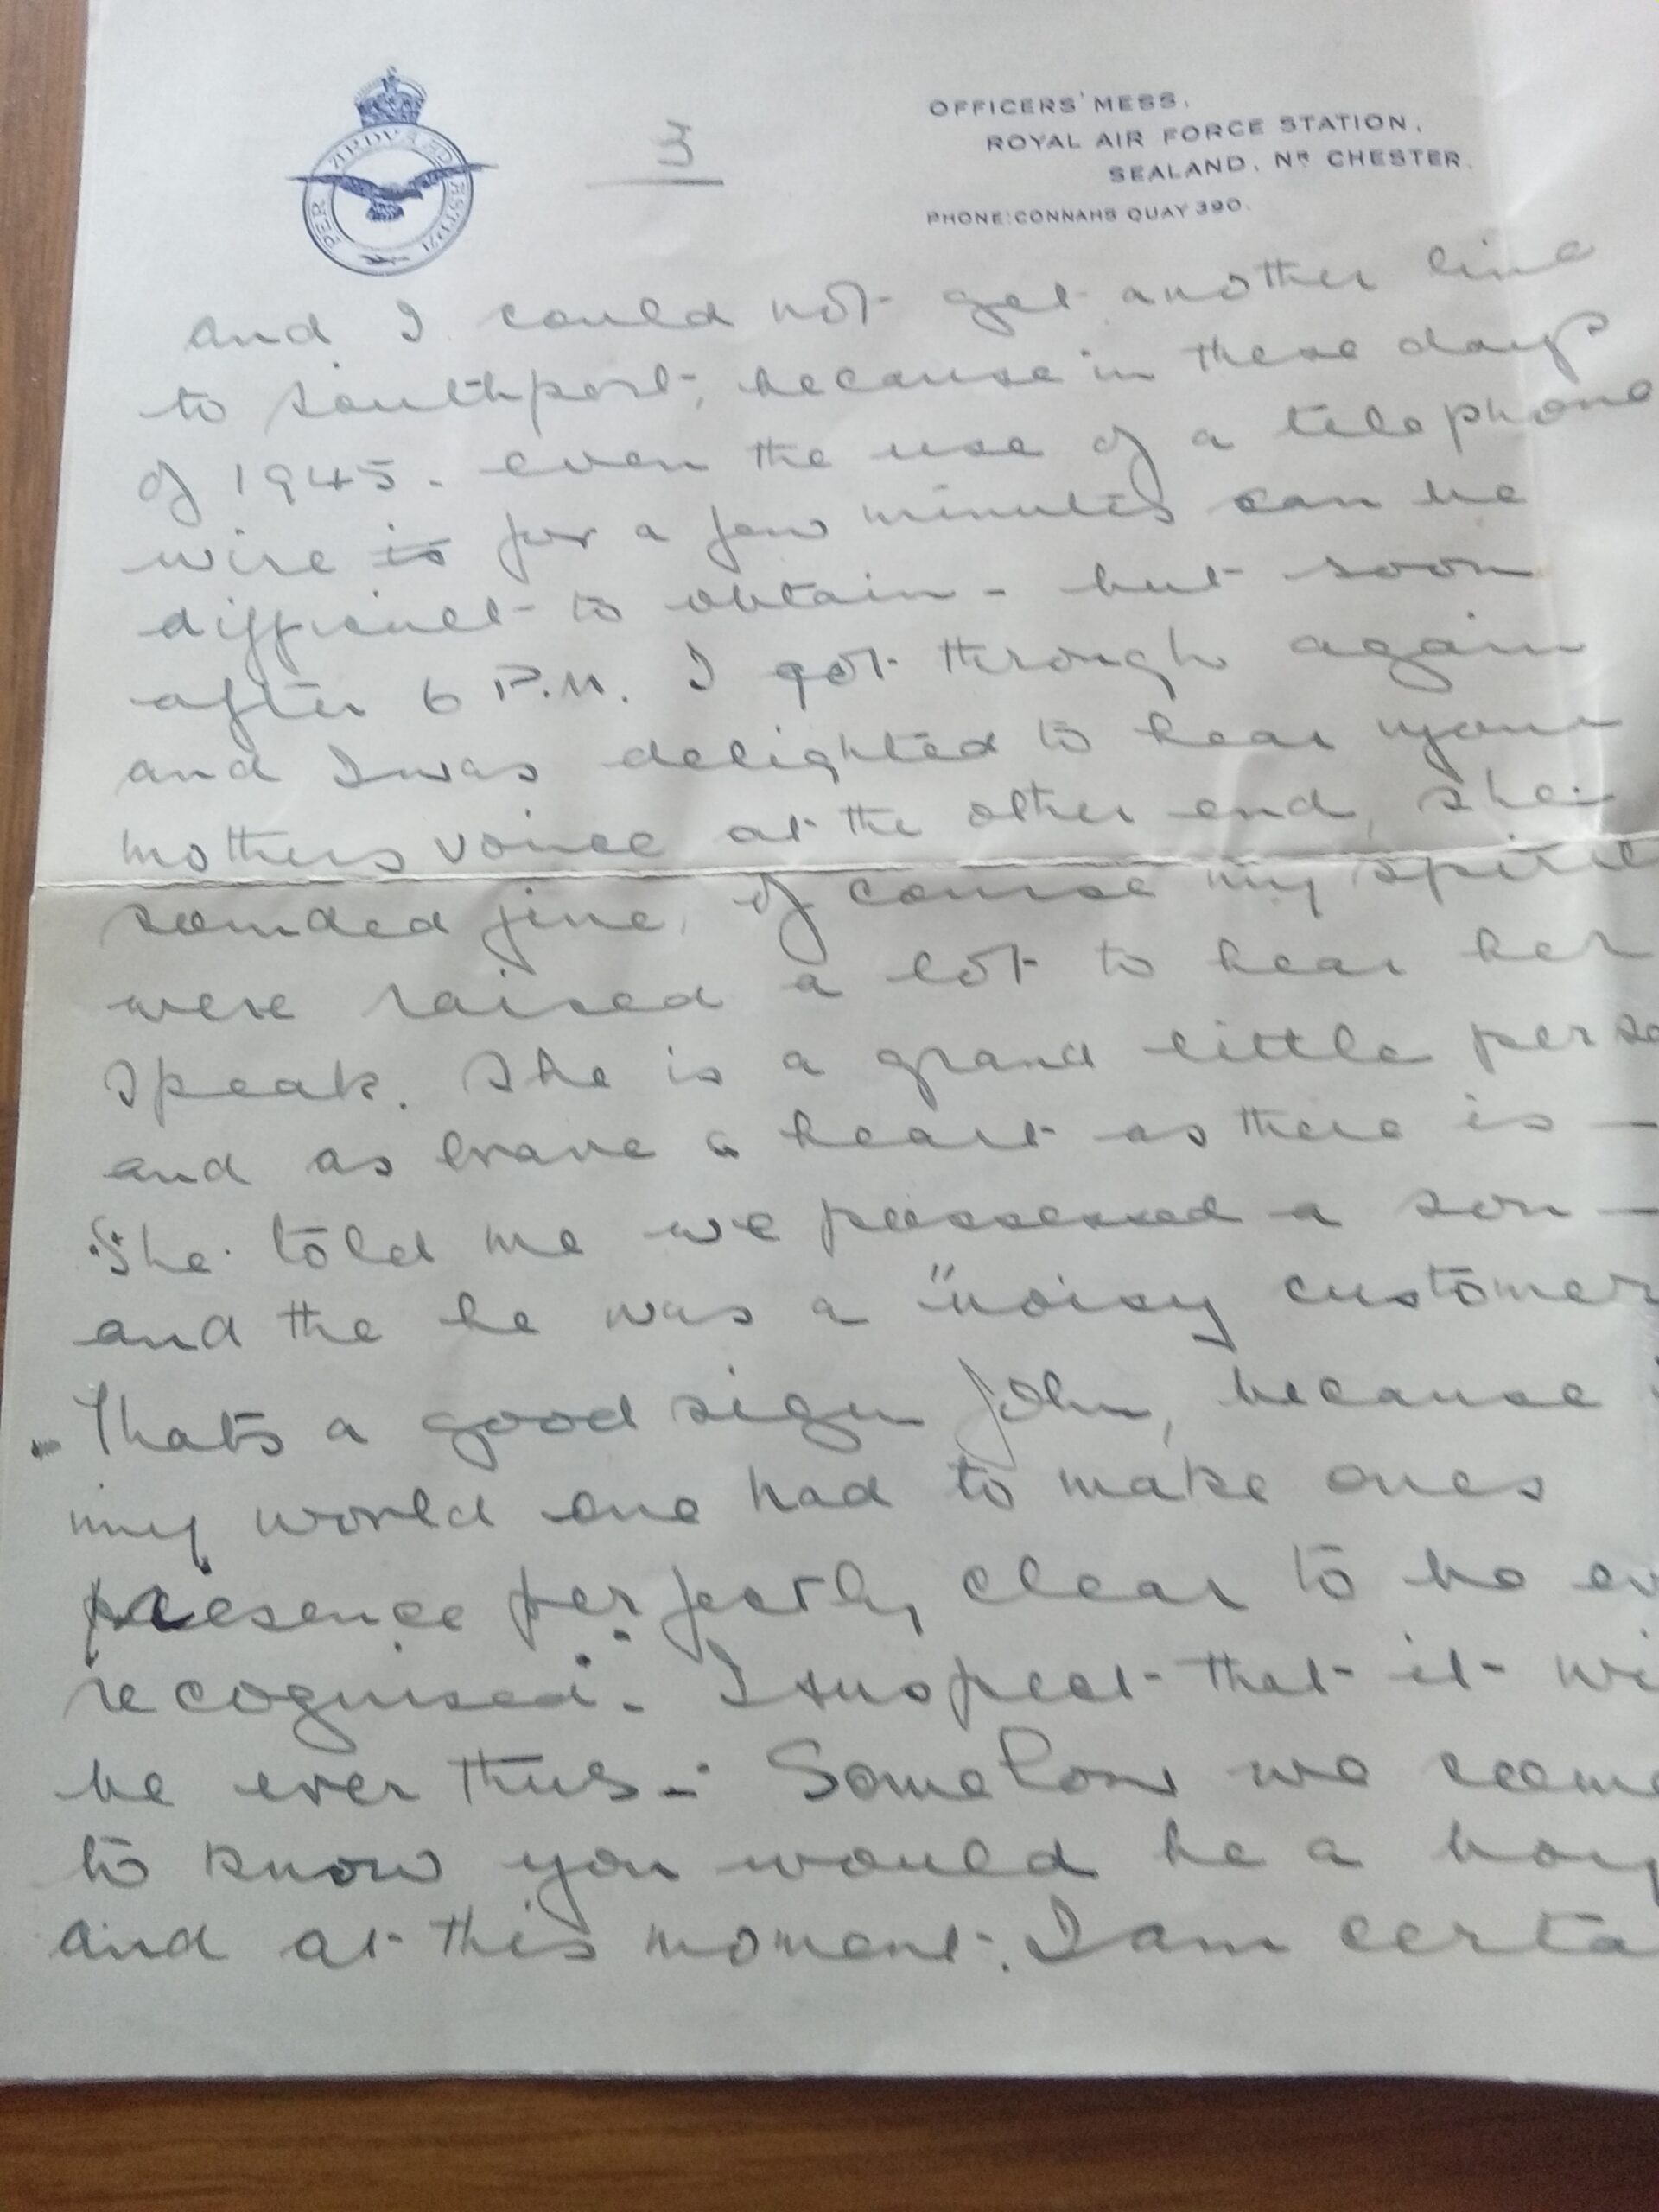 PER ARDVA AD ASTRA
3
OFFICERS' MESS,
ROYAL AIR FORCE STATION,
SEALAND, NR CHESTER.
PHONE: CONNAHS QUAY 390.
and I could not get another line
to Southport, because in these days
of 1945 - even the use of a telephone
wire is for a few minutes can be
difficult to obtain - but soon
after 6 P.M. I got through again
and I was delighted to hear your
mothers voice at the other end, she
sounded fine, of course my spirits
were raised a lot to hear her
speak. She is a grand little perso
and as brave a heart as there is —
She told me we possessed a son —
and the he was a "noisy customer
Thats a good sign John, because i
my world one had to make ones
presence perfectly clear to be ev
recognised. I suspect that it wi
be ever thus - Somehow we seeme
to know you would be a boy
and at this moment I am certa